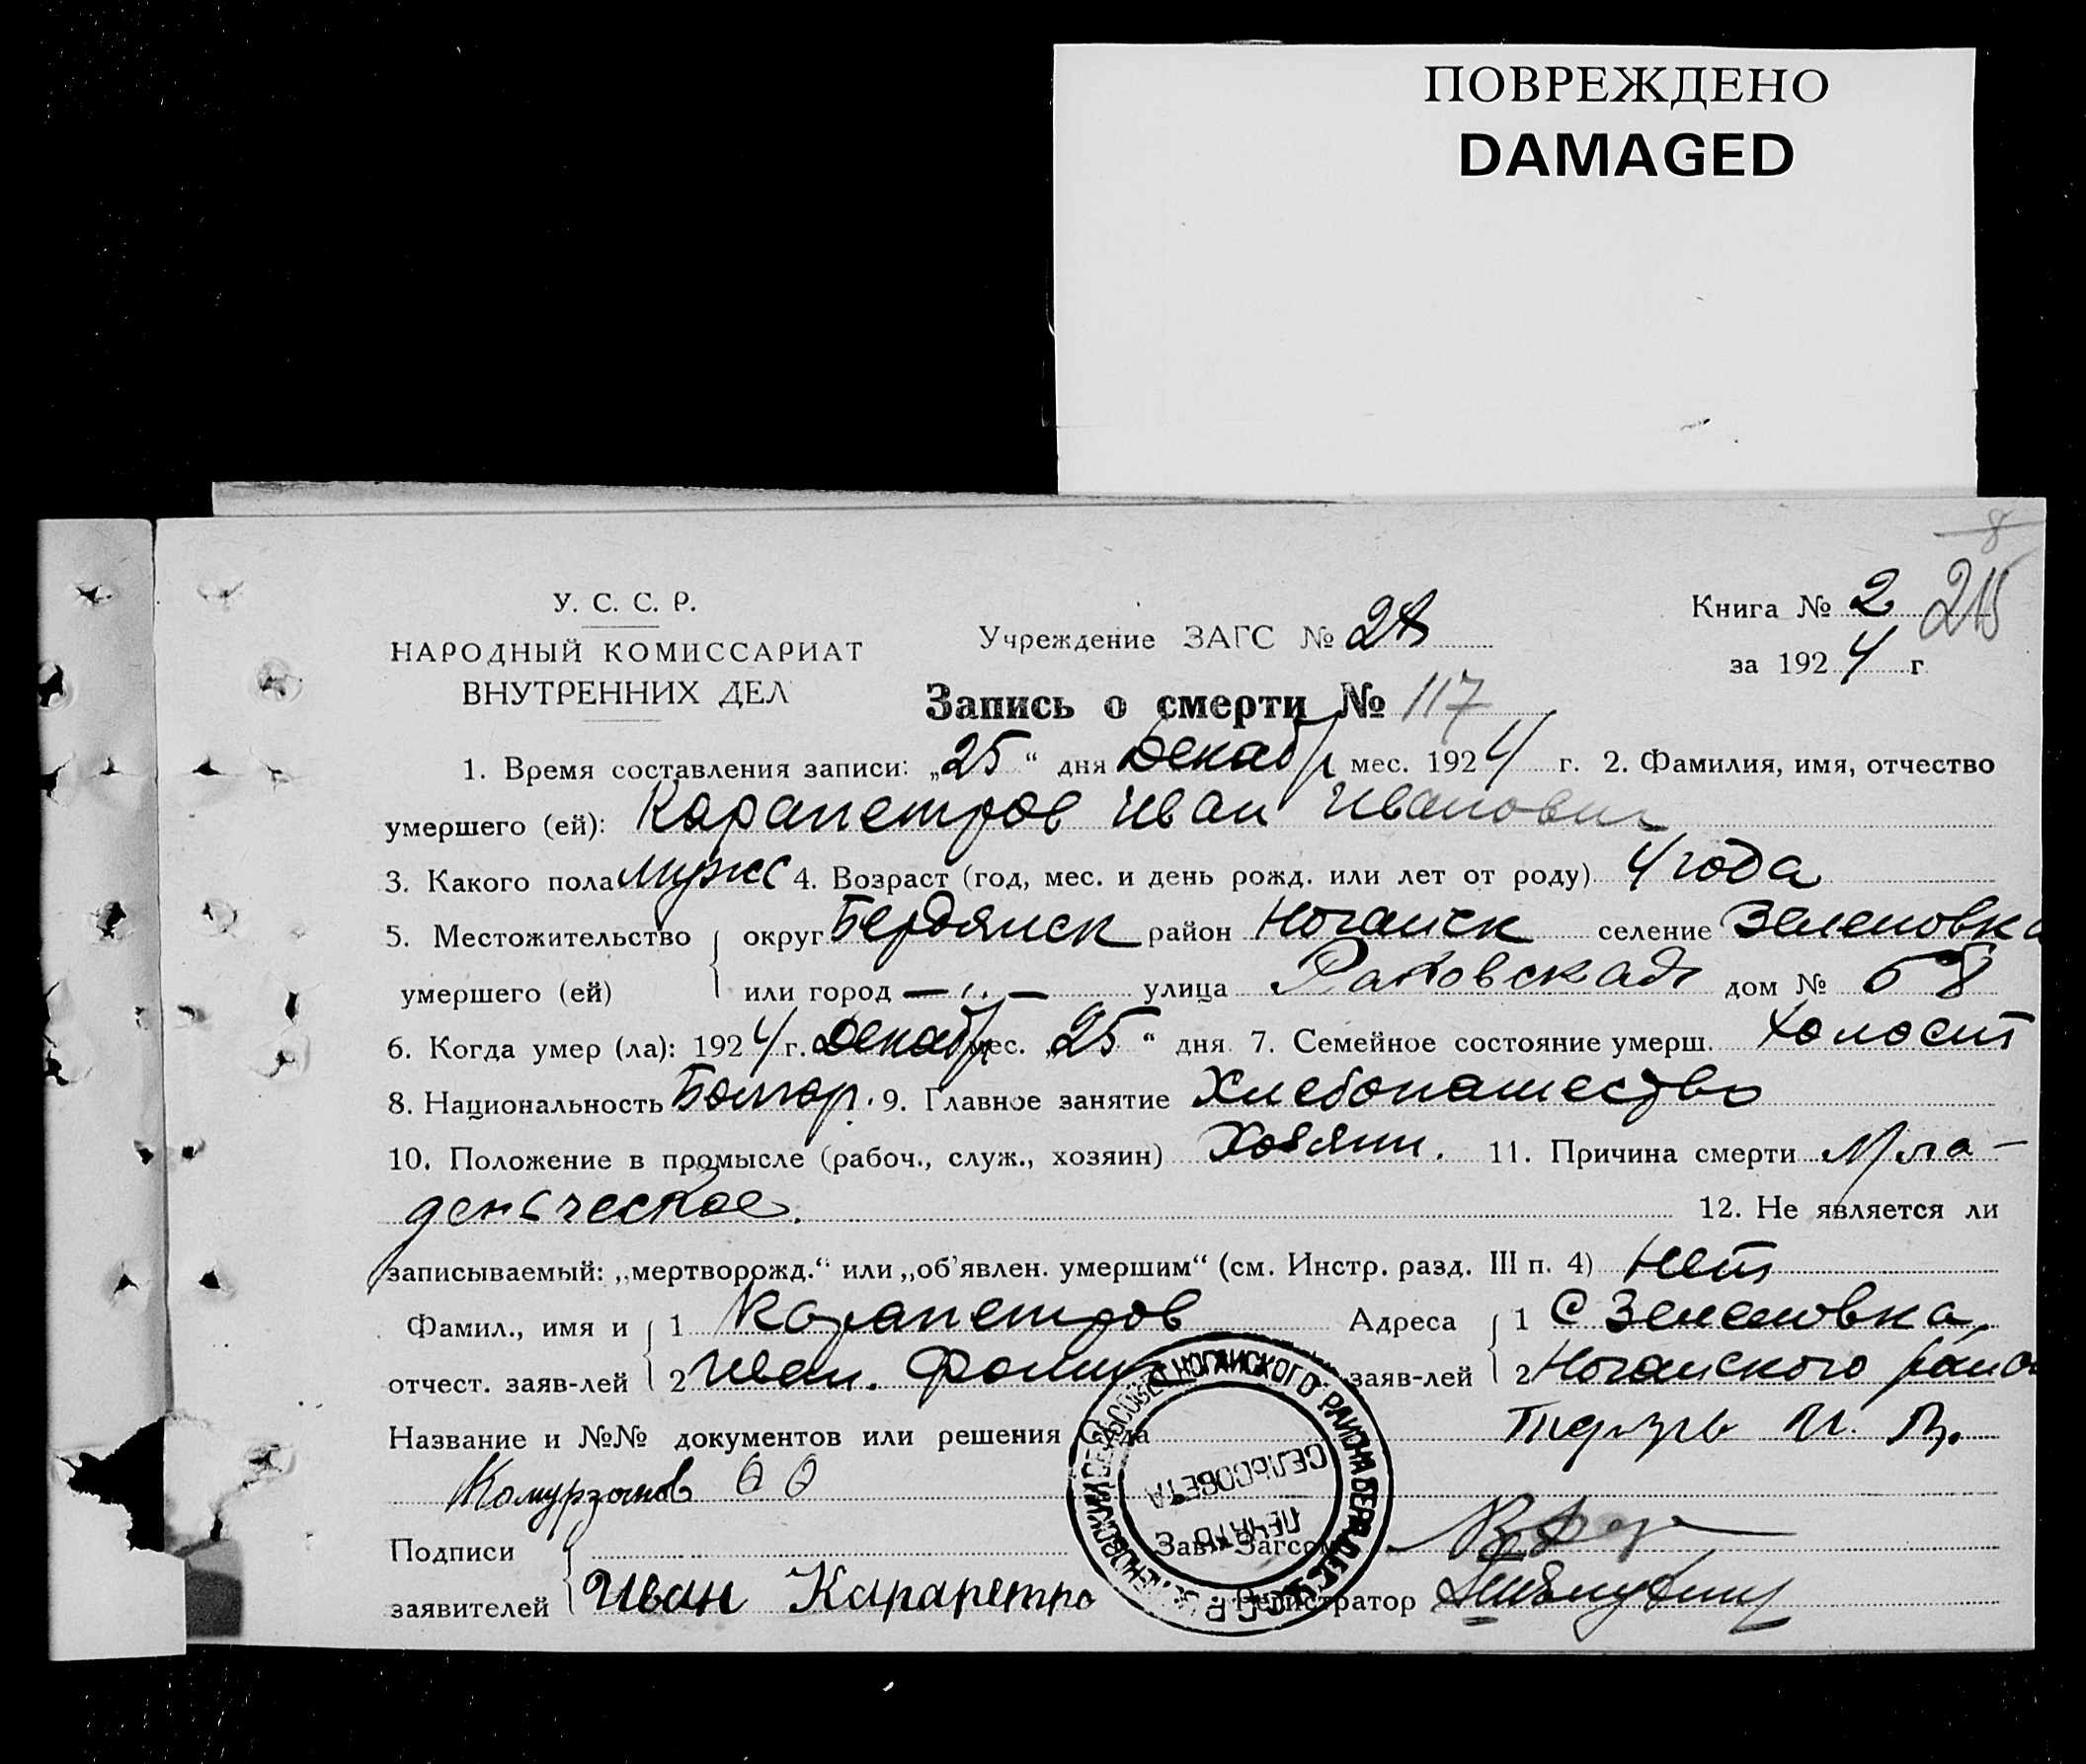 ПОВРЕЖДЕНО
DAMAGED
8
215
У. С. С. Р.
НАРОДНЫЙ КОМИССАРИАТ
ВНУТРЕННИХ ДЕЛ
Учреждение ЗАГС № 28
Книга № 2
за 1924 г.
Запись о смерти № 117
1. Время составления записи: „25“ дня Декабр мес. 1924 г. 2. Фамилия, имя, отчество
умершего (ей): Карапетров Иван Иванович
3. Какого пола мужс 4. Возраст (год, мес. и день рожд. или лет от роду) 4 года
5. Местожительство округ Бердянск район Ногайск селение Зеленовка
умершего (ей) или город — „ — улица Раковская дом № 58
6. Когда умер (ла): 1924 г. Декабр мес. „25“ дня 7. Семейное состояние умерш. Холост
8. Национальность Болгар. 9. Главное занятие Хлебопашество
10. Положение в промысле (рабоч., служ., хозяин) Хозяин. 11. Причина смерти Мла-
денческое. 12. Не является ли
записываемый: „мертворожд.“ или „об'явлен. умершим“ (см. Инстр. разд. III п. 4) Нет
Фамил., имя и 1 Карапетров Адреса 1 С Зеленовка
отчест. заяв-лей 2 Иван. заяв-лей 2 Ногайского район
Название и №№ документов или решения Суда
Подписи Зав. Загсом
заявителей Иван Карапетро Регистратор
ЗЕЛЕНОВСКИЙ СЕЛЬСОВЕТ НОГАЙСКОГО РАЙОНА БЕРДЯНСК
ПЕЧАТЬ
СЕЛЬСОВЕТА